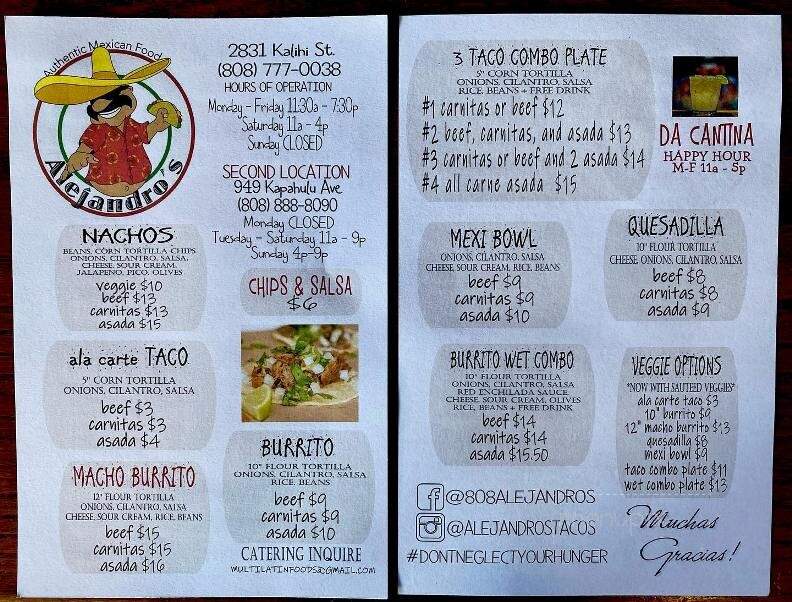 Authentic Mexican Food
Alejandro's
2831 Kalihi St.
(808) 777-0038
HOURS OF OPERATION
Monday - Friday 11:30a - 7:30p
Saturday 11a - 4p
Sunday CLOSED
SECOND LOCATION
949 Kapahulu Ave
(808) 888-8090
Monday CLOSED
Tuesday - Saturday 11a - 9p
Sunday 4p-9p
NACHOS
BEANS, CORN TORTILLA CHIPS
ONIONS, CILANTRO, SALSA,
CHEESE, SOUR CREAM,
JALAPENO, PICO, OLIVES
veggie $10
beef $13
carnitas $13
asada $15
CHIPS & SALSA
$6
ala carte TACO
5" CORN TORTILLA
ONIONS, CILANTRO, SALSA
beef $3
carnitas $3
asada $4
MACHO BURRITO
12" FLOUR TORTILLA
ONIONS, CILANTRO, SALSA
CHEESE, SOUR CREAM, RICE, BEANS
beef $15
carnitas $15
asada $16
BURRITO
10" FLOUR TORTILLA
ONIONS, CILANTRO, SALSA
RICE, BEANS
beef $9
carnitas $9
asada $10
CATERING INQUIRE
MULTILATINFOODS@GMAIL.COM
3 TACO COMBO PLATE
5" CORN TORTILLA
ONIONS, CILANTRO, SALSA
RICE, BEANS + FREE DRINK
#1 carnitas or beef $12
#2 beef, carnitas, and asada $13
#3 carnitas or beef and 2 asada $14
#4 all carne asada $15
DA CANTINA
HAPPY HOUR
M-F 11a - 5p
MEXI BOWL
ONIONS, CILANTRO, SALSA
CHEESE, SOUR CREAM, RICE, BEANS
beef $9
carnitas $9
asada $10
QUESADILLA
10" FLOUR TORTILLA
CHEESE, ONIONS, CILANTRO, SALSA
beef $8
carnitas $8
asada $9
BURRITO WET COMBO
10" FLOUR TORTILLA
ONIONS, CILANTRO, SALSA
RED ENCHILADA SAUCE,
CHEESE, SOUR CREAM, OLIVES
RICE, BEANS + FREE DRINK
beef $14
carnitas $14
asada $15.50
VEGGIE OPTIONS
*NOW WITH SAUTEED VEGGIES*
ala carte taco $3
10" burrito $9
12" macho burrito $13
quesadilla $8
mexi bowl $9
taco combo plate $11
wet combo plate $13
@808ALEJANDROS
@ALEJANDROSTACOS
#DONTNEGLECTYOURHUNGER
Muchas
Gracias!